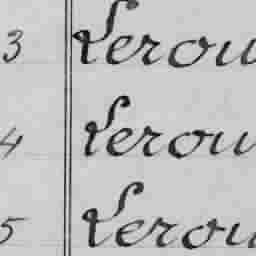 3 Lerou
4 Lerou
5 Lerou